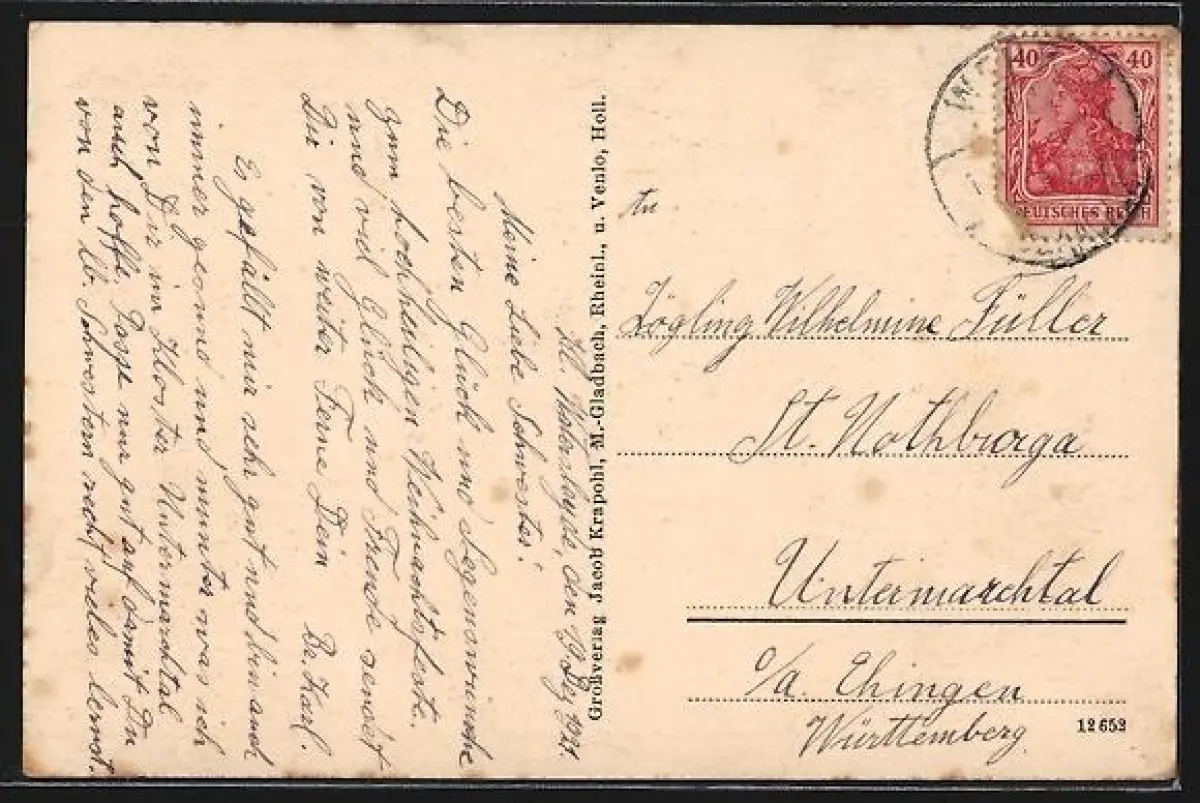 Kl. den 19. Dez. 1921.
Meine Liebe Schwester!
Die besten Glück und Segenswünsche
zum hochheiligen Weihnachtsfeste.
und viel Glück und Freude sendet
Dir von weiter Ferne Dein Br. Karl.
Es gefällt mir sehr gut und bin auch
immer gesund und munter was ich
von Dir im Kloster Untermarchtal
auch hoffe. Passe nur gut auf damit Du
von den lb. Schwestern recht vieles lernst.
Großverlag Jacob Krapohl, M.-Gladbach, Rheinl., u. Venlo, Holl.
40 40
DEUTSCHES REICH
An
Zögling Wilhelmine Füller
St. Nothburga
Untermarchtal
o/a. Ehingen
Württemberg.
12652